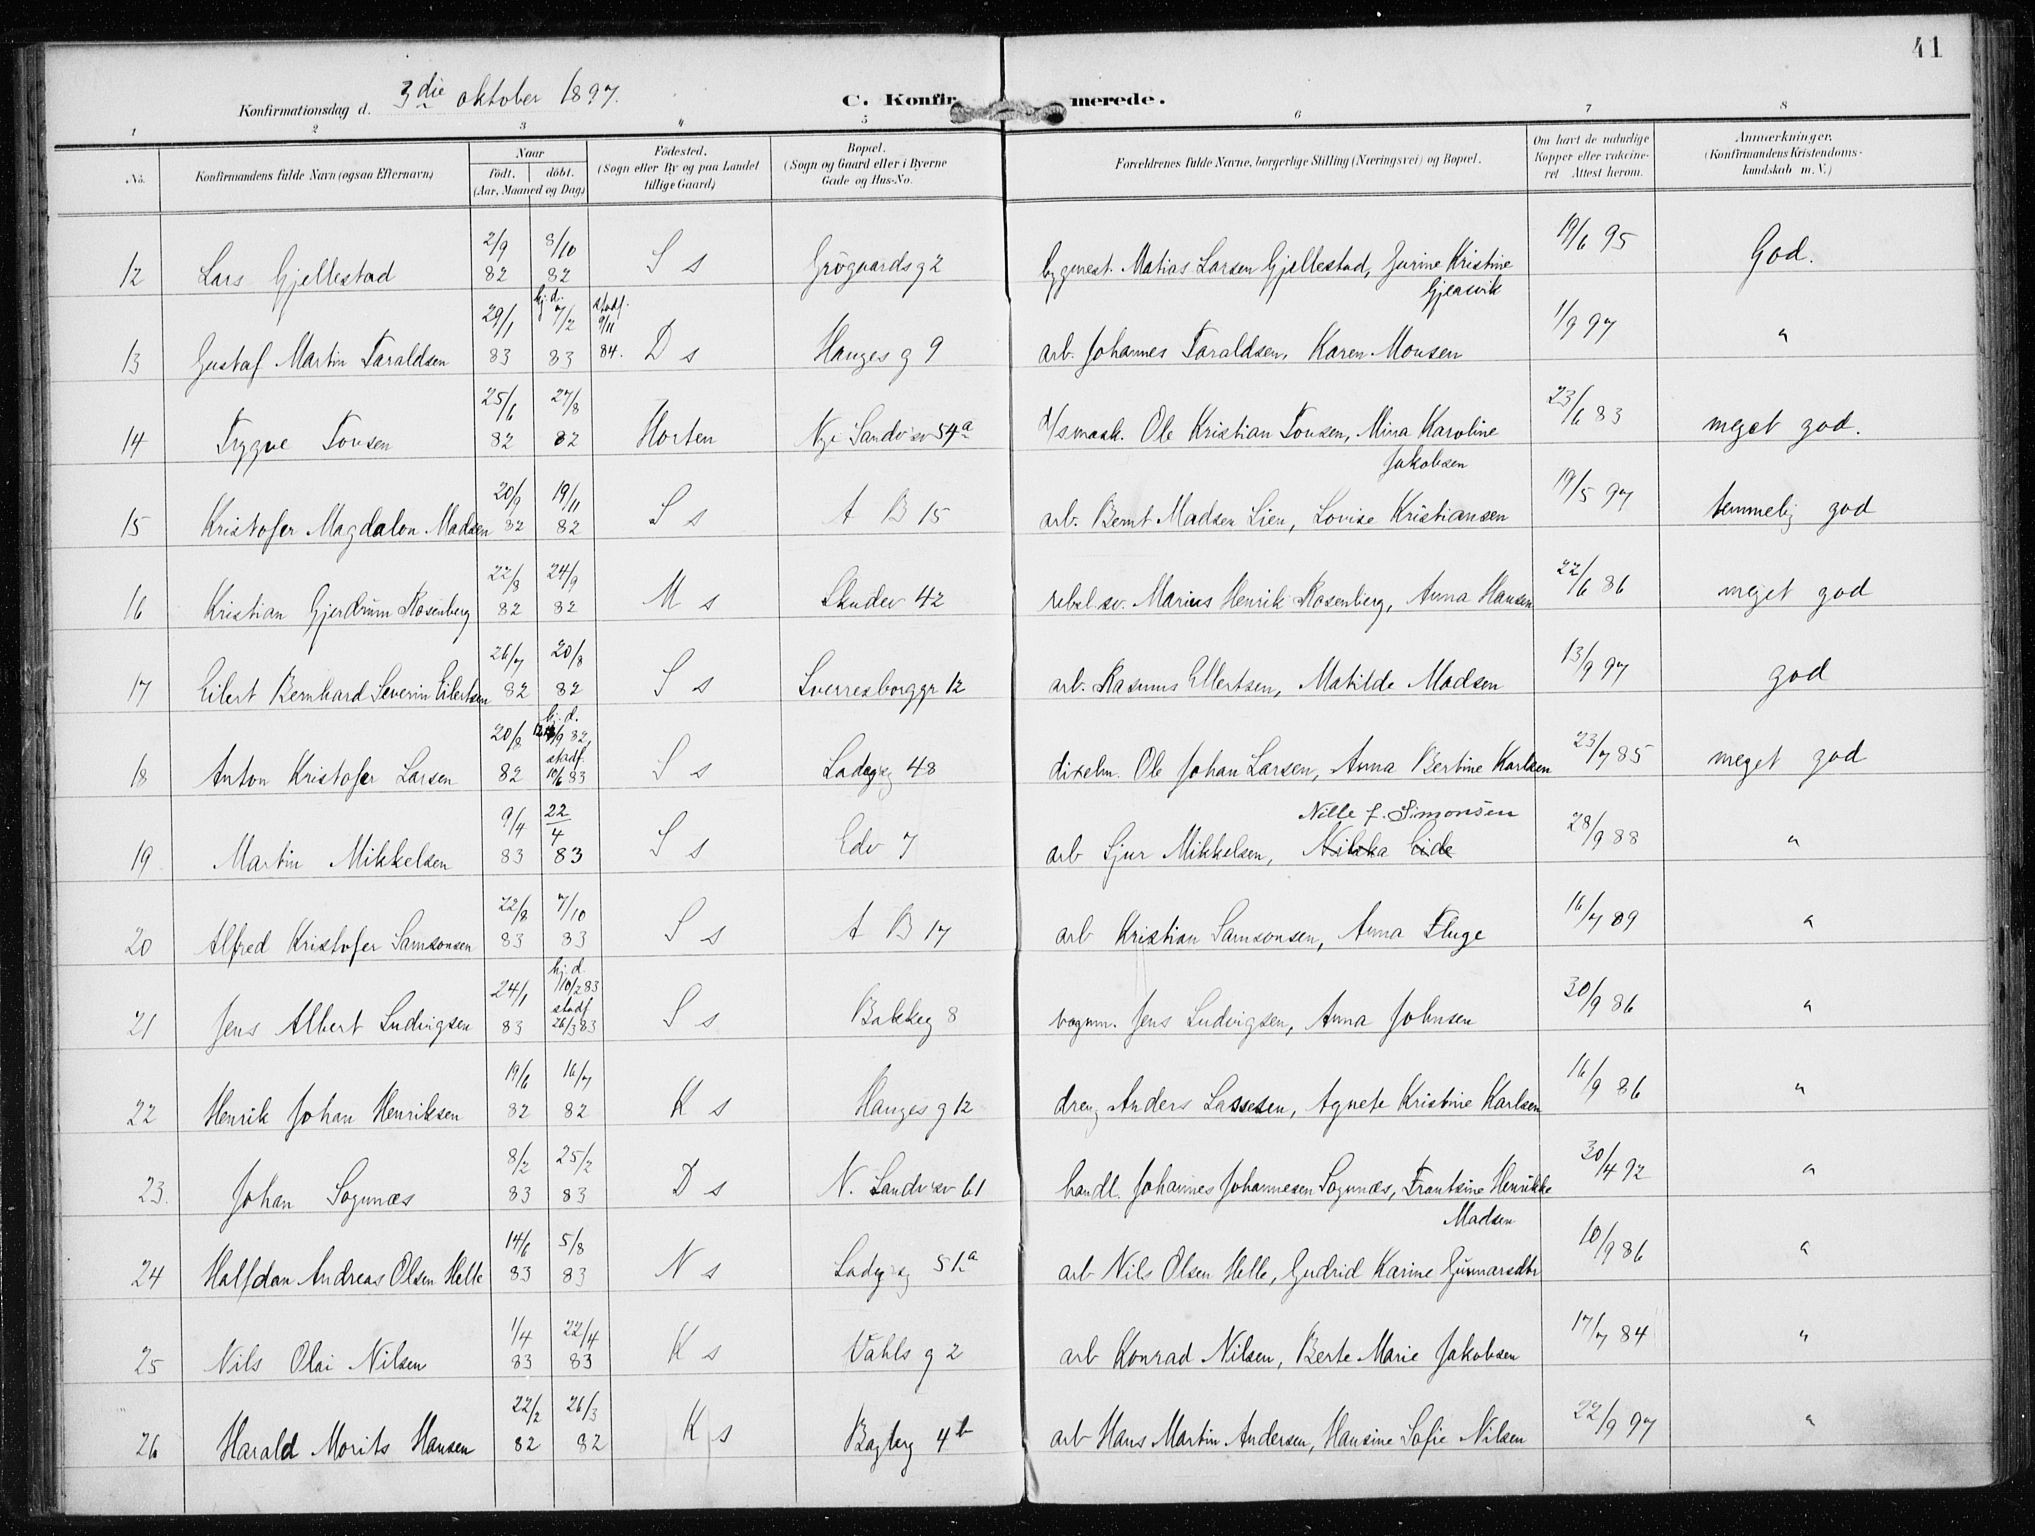 41
Konfirmationsdag d. 3die oktober 1897.
C. Konfirmerede.
1 2 3 4 5 6 7 8
No. Konfirmandens fulde Navn (ogsaa Efternavn) Naar født. døbt. (Aar, Maaned og Dag) Fødested. (Sogn eller By og paa Landet tillige Gaard) Bopæl. (Sogn og Gaard eller i Byerne Gade og Hus-No. Forældrenes fulde Navne, borgerlige Stilling (Næringsvei) og Bopæl. Om havt de naturlige Kopper eller vakcineret Attest herom. Anmærkninger. (Konfirmandens Kristendomskundskab m. V.)
12 Lars Gjellestad 2/9 82 8/10 82 S s Grøgaardsg 2 bygmest. Matias Larsen Gjellestad, Jurine Kristine Gjeasvik 19/6 95 God.
13 Gustaf Martin Taraldsen 29/1 83 hj. d. 7/2 83 stadf. 9/11 84. D s Hauges g 9 arb. Johannes Taraldsen, Karen Monsen 1/9 97 "
14 Trygve Tonsen 25/6 82 27/8 82 Horten Nye Sandvisv 54a Ole Kristian Tonsen, Mina Karoline Jakobsen 23/6 83 meget god.
15 Kristofer Magdalon Madsen 20/9 82 19/11 82 S s A B 15 arb. Bernt Madsen Lien, Lovise Kristiansen 19/5 97 temmelig god
16 Kristian Gjerdrum Rosenberg 22/8 82 24/9 82 M s Skudev 42 rebsl.sv. Marius Henrik Rosenberg, Anna Hansen 22/6 86 meget god
17 Eilert Bernhard Severin Eilertsen 26/7 82 20/8 82 S s Sverresborggr 12 arb. Rasmus Ellertsen, Matilde Madsen 13/9 97 god
18 Anton Kristofer Larsen 20/8 82 hj. d. 82, stadf. 10/6 83 S s Ladegsg 48 dixelm. Ole Johan Larsen, Anna Bertine Karlsen 23/7 85 meget god
19 Martin Mikkelsen 9/4 83 22/4 83 S s Edv 7 arb Sjur Mikkelsen, Nille f. Simonsen 28/9 88 "
20 Alfred Kristofer Samsonsen 22/8 83 7/10 83 S s A B 17 arb Kristian Samsonsen, Anna Fluge 16/7 89 "
21 Jens Albert Ludvigsen 24/1 83 hj. d. 10/2 83 stadf 26/3 83 S s Bakkeg 8 vognm. Jens Ludvigsen, Anna Johnsen 30/9 86 "
22 Henrik Johan Henriksen 19/6 82 16/7 82 K s Hauges g 12 dreng Anders Lassesen, Agnete Kristine Karlsen 16/9 86 "
23. Johan Sognnæs 8/2 83 25/2 83 D s N. Sandvisv 61 handl. Johannes Johannesen Sognnæs, Frantsine Henrikke Madsen 30/4 92 "
24 Halfdan Andreas Olsen Helle 14/6 83 5/8 83 N s Ladegsg 51a arb Nils Olsen Helle, Gudrid Karine Gunnarsdtr 10/9 86 "
25 Nils Olai Nilsen 1/4 83 22/4 83 K s Vahls g 2 arb Konrad Nilsen, Berte Marie Jakobsen 17/7 84 "
26 Harald Morits Hansen 22/2 82 26/3 82 K s Bagberg 4b arb Hans Martin Andersen, Hansine Sofie Nilsen 22/9 97 "